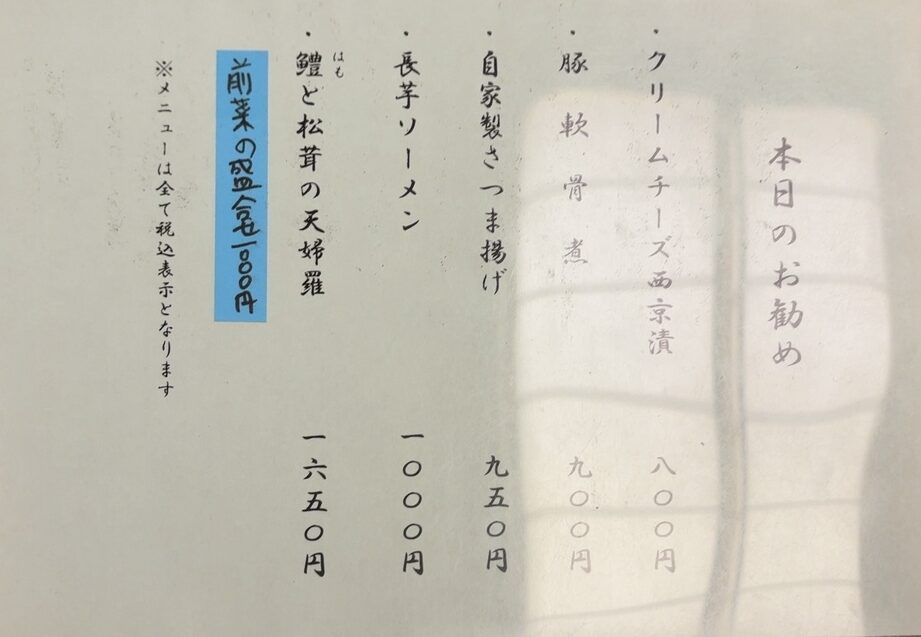 本日のお勧め
・クリームチーズ西京漬 八〇〇円
・豚軟骨煮 九〇〇円
・自家製さつま揚げ 九五〇円
・長芋ソーメン 一〇〇〇円
はも
・鱧と松茸の天婦羅 一六五〇円
前菜の盛合せ一〇〇〇円
※メニューは全て税込表示となります